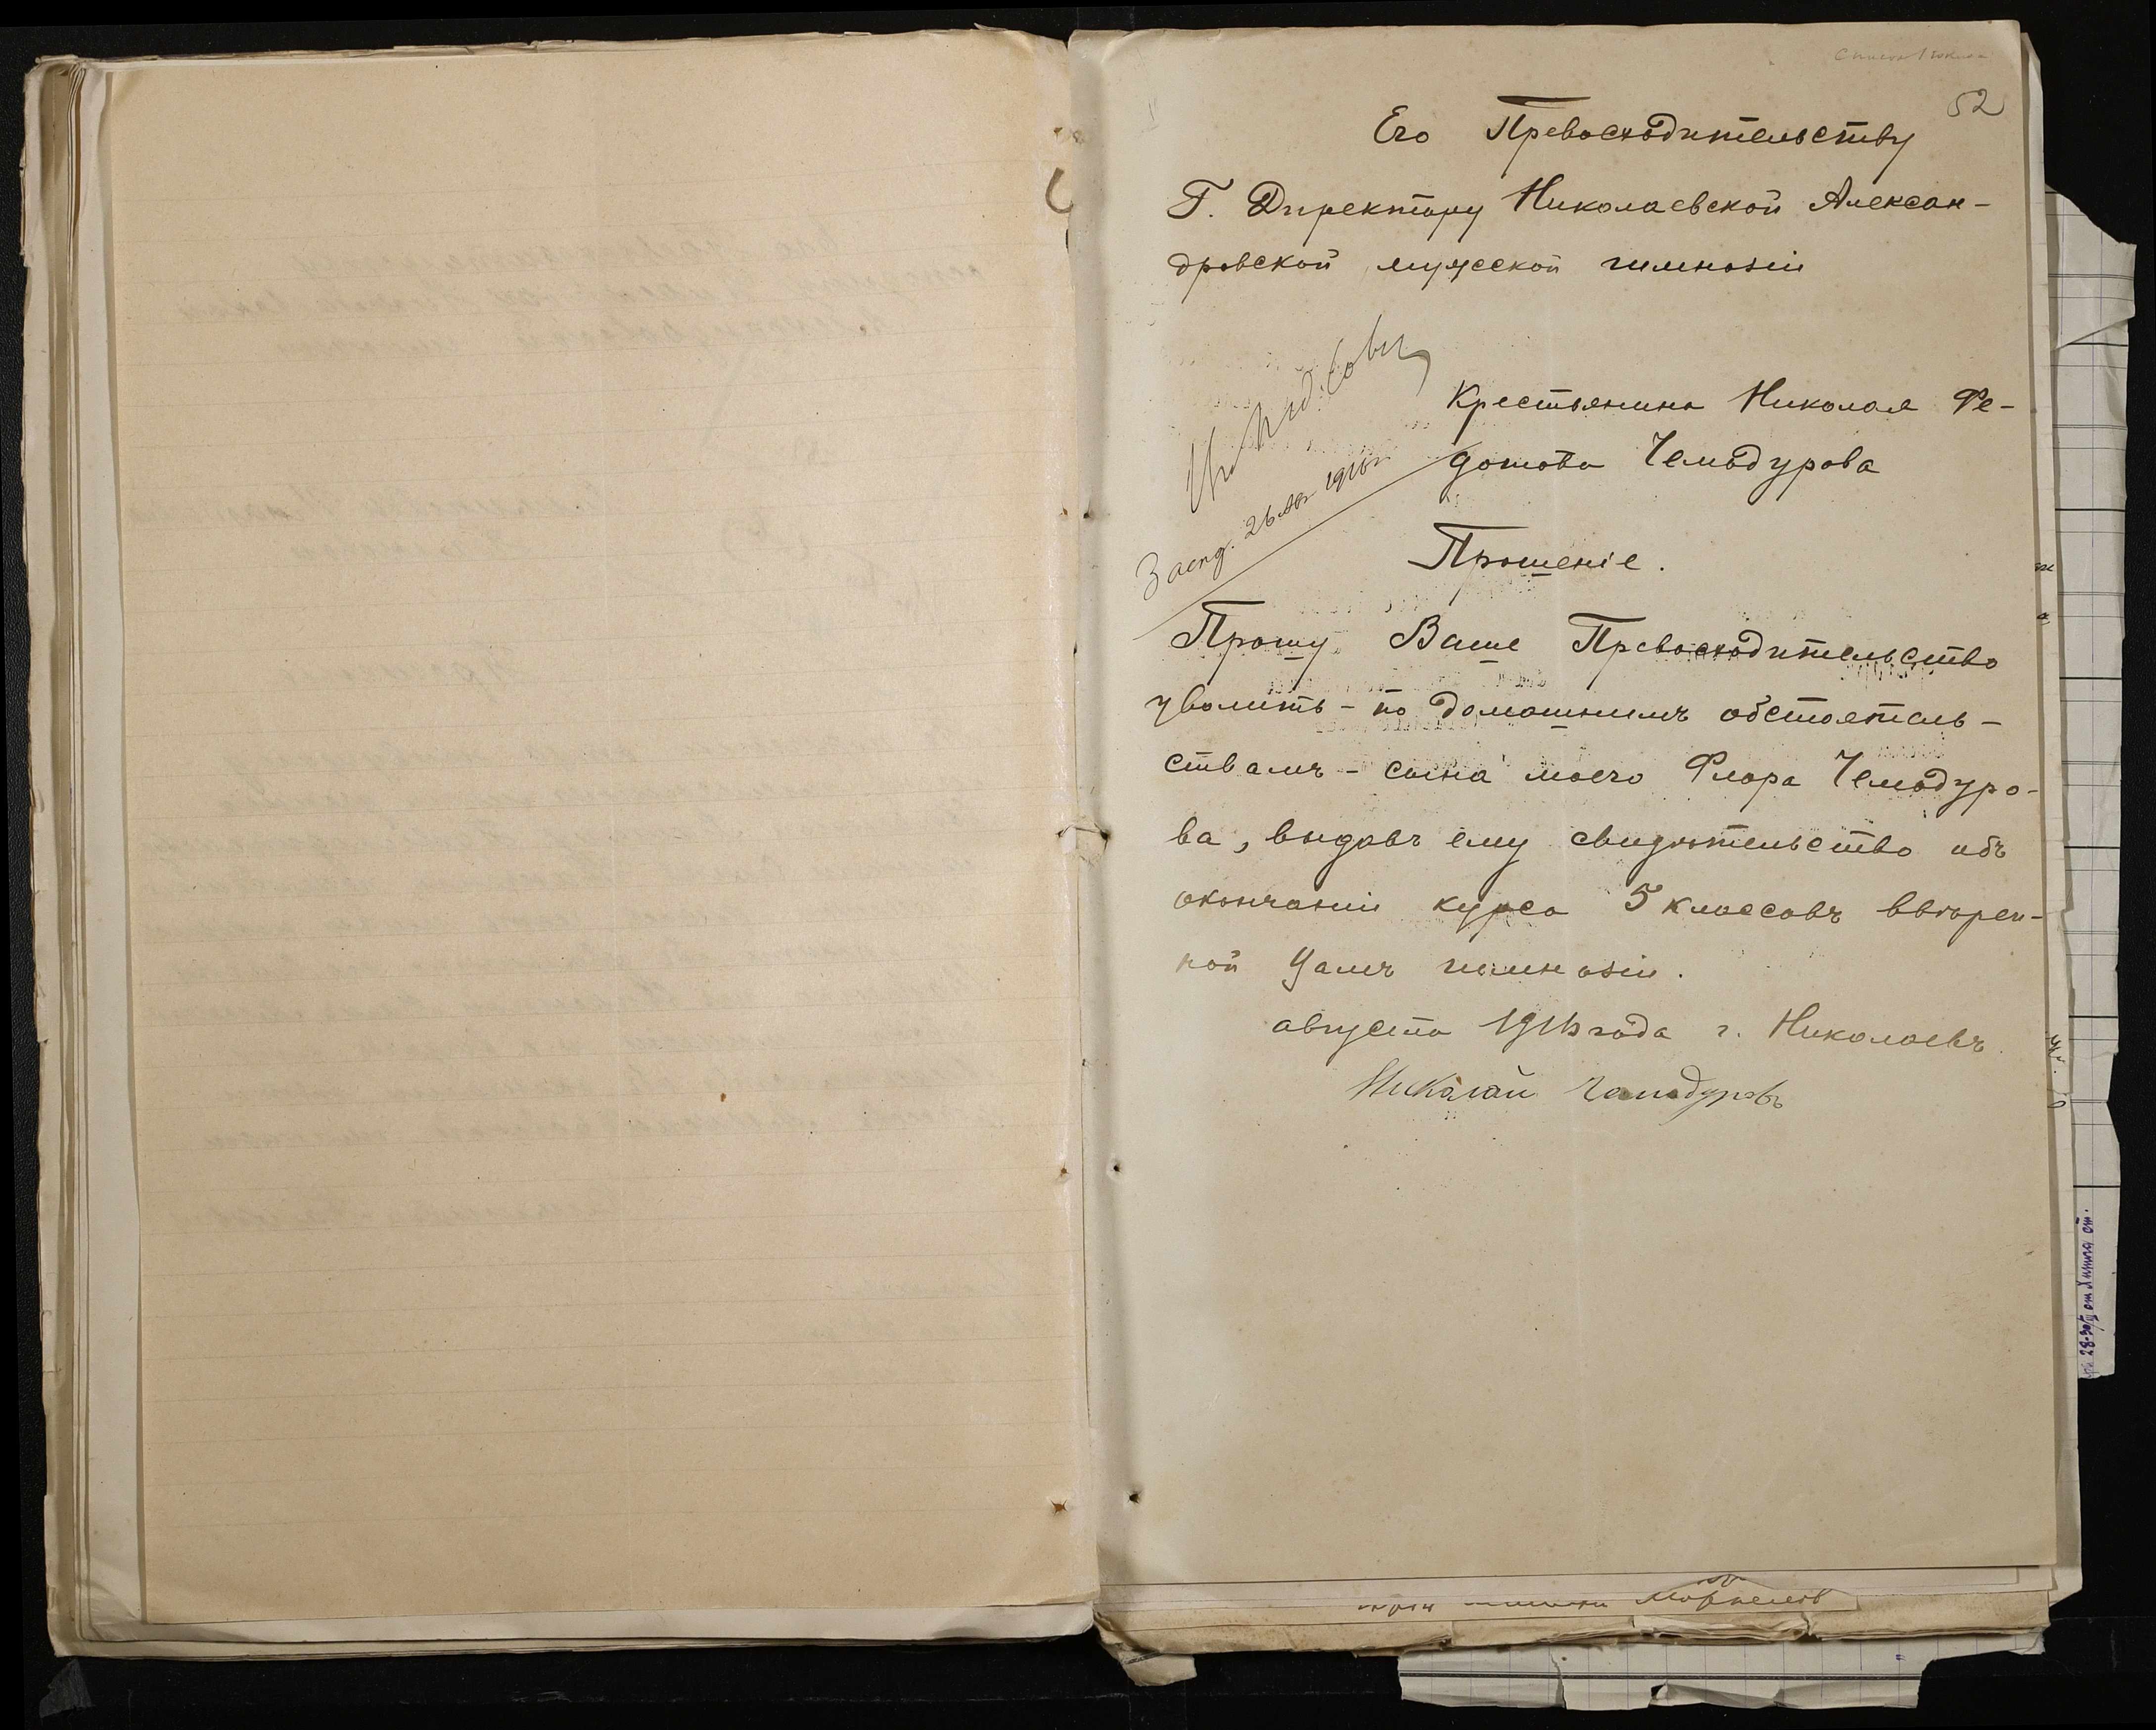 52
Его Превосходительству
Г. Директору Николаевской Алексан-
дровской мужской гимназіи
Крестьянина Николая Фе-
дотова Чемодурова
Засѣд. 26 авг 1916 г.
Прошеніе.
Прошу Ваше Превосходительство
уволить - по домашнимъ обстоятель-
ствамъ - сына моего Флора Чемодуро-
ва, выдавъ ему свидѣтельство объ
окончаніи курса 5 классовъ ввѣрен-
ной Вамъ гимназіи.
августа 1916 года г. Николаевъ.
Николай Чемодуровъ